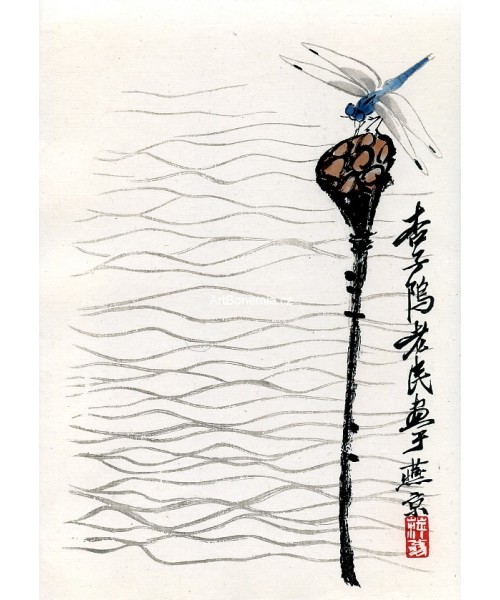 杏子隝老民畫于燕京
ArtBohemia.cz